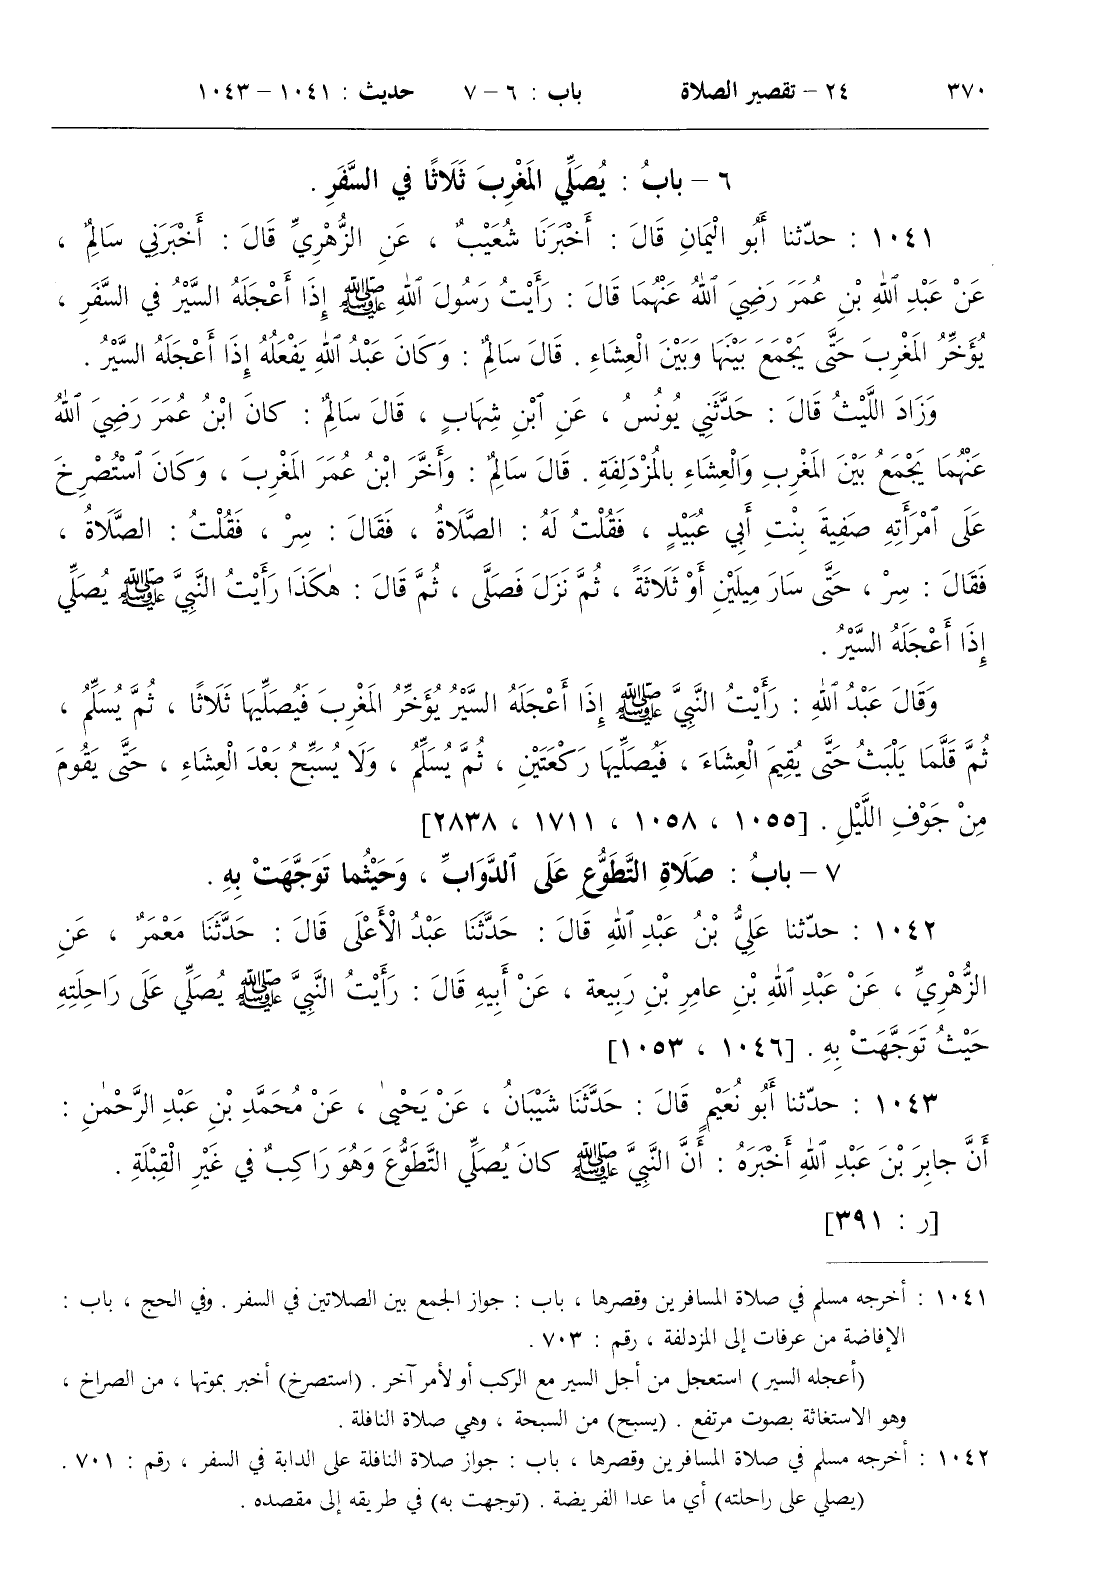 ٣٧٠ ٢٤ – تقصير الصلاة باب : ٦ – ٧ حديث : ١٠٤١ – ١٠٤٣
٦ – بابُ : يُصَلِّي المَغْرِبَ ثَلَاثًا في السَّفَرِ .
١٠٤١ : حدّثنا أَبُو الْيَمَانِ قَالَ : أَخْبَرَنَا شُعَيْبٌ ، عَنِ الزُّهْرِيِّ قَالَ : أَخْبَرَنِي سَالِمٌ ،
عَنْ عَبْدِ ٱللهِ بْنِ عُمَرَ رَضِيَ ٱللهُ عَنْهُمَا قَالَ : رَأَيْتُ رَسُولَ ٱللهِ ﷺ إِذَا أَعْجَلَهُ السَّيْرُ في السَّفَرِ ،
يُؤَخِّرُ المَغْرِبَ حَتَّى يَجْمَعَ بَيْنَهَا وَبَيْنَ الْعِشَاءِ . قَالَ سَالِمٌ : وَكَانَ عَبْدُ ٱللهِ يَفْعَلُهُ إِذَا أَعْجَلَهُ السَّيْرُ .
وَزَادَ اللَّيْثُ قَالَ : حَدَّثَنِي يُونُسُ ، عَنِ ٱبْنِ شِهَابٍ ، قَالَ سَالِمٌ : كانَ ابْنُ عُمَرَ رَضِيَ ٱللهُ
عَنْهُمَا يَجْمَعُ بَيْنَ المَغْرِبِ وَالْعِشَاءِ بالمُزْدَلِفَةِ . قَالَ سَالِمٌ : وَأَخَّرَ ابْنُ عُمَرَ المَغْرِبَ ، وَكَانَ ٱسْتُصْرِخَ
عَلَى ٱمْرَأَتِهِ صَفِيةَ بِنْتِ أَبِي عُبَيْدٍ ، فَقُلْتُ لَهُ : الصَّلَاةُ ، فَقَالَ : سِرْ ، فَقُلْتُ : الصَّلَاةُ ،
فَقَالَ : سِرْ ، حَتَّى سَارَ مِيلَيْنِ أَوْ ثَلَاثَةً ، ثُمَّ نَزَلَ فَصَلَّى ، ثُمَّ قَالَ : هٰكَذَا رَأَيْتُ النَّبِيَّ ﷺ يُصَلِّي
إِذَا أَعْجَلَهُ السَّيْرُ .
وَقَالَ عَبْدُ ٱللهِ : رَأَيْتُ النَّبِيَّ ﷺ إِذَا أَعْجَلَهُ السَّيْرُ يُؤَخِّرُ المَغْرِبَ فَيُصَلِّيهَا ثَلَاثًا ، ثُمَّ يُسَلِّمُ ،
ثُمَّ قَلَّمَا يَلْبَثُ حَتَّى يُقِيمَ الْعِشَاءَ ، فَيُصَلِّيهَا رَكْعَتَيْنِ ، ثُمَّ يُسَلِّمُ ، وَلَا يُسَبِّحُ بَعْدَ الْعِشَاءِ ، حَتَّى يَقُومَ
مِنْ جَوْفِ اللَّيْلِ . [١٠٥٥ ، ١٠٥٨ ، ١٧١١ ، ٢٨٣٨]
٧ – بابُ : صَلَاةِ التَّطَوُّعِ عَلَى ٱلدَّوَابِّ ، وَحَيْثُما تَوَجَّهَتْ بِهِ .
١٠٤٢ : حدّثنا عَلِيُّ بْنُ عَبْدِ ٱللهِ قَالَ : حَدَّثَنَا عَبْدُ الْأَعْلَى قَالَ : حَدَّثَنَا مَعْمَرٌ ، عَنِ
الزُّهْرِيِّ ، عَنْ عَبْدِ ٱللهِ بْنِ عامِرِ بْنِ رَبِيعة ، عَنْ أَبِيهِ قَالَ : رَأَيْتُ النَّبِيَّ ﷺ يُصَلِّي عَلَى رَاحِلَتِهِ
حَيْثُ تَوَجَّهَتْ بِهِ . [١٠٤٦ ، ١٠٥٣]
١٠٤٣ : حدّثنا أَبُو نُعَيْمٍ قَالَ : حَدَّثَنَا شَيْبَانُ ، عَنْ يَحْيىٰ ، عَنْ مُحَمَّدِ بْنِ عَبْدِ الرَّحْمٰنِ :
أَنَّ جابِرَ بْنَ عَبْدِ ٱللهِ أَخْبَرَهُ : أَنَّ النَّبِيَّ ﷺ كانَ يُصَلِّي التَّطَوُّعَ وَهُوَ رَاكِبٌ في غَيْرِ الْقِبْلَةِ .
[ر : ٣٩١]
١٠٤١ : أخرجه مسلم في صلاة المسافرين وقصرها ، باب : جواز الجمع بين الصلاتين في السفر . وفي الحج ، باب :
الإفاضة من عرفات إلى المزدلفة ، رقم : ٧٠٣ .
(أعجله السير) استعجل من أجل السير مع الركب أو لأمر آخر . (استصرخ) أخبر بموتها ، من الصراخ ،
وهو الاستغاثة بصوت مرتفع . (يسبح) من السبحة ، وهي صلاة النافلة .
١٠٤٢ : أخرجه مسلم في صلاة المسافرين وقصرها ، باب : جواز صلاة النافلة على الدابة في السفر ، رقم : ٧٠١ .
(يصلي على راحلته) أي ما عدا الفريضة . (توجهت به) في طريقه إلى مقصده .